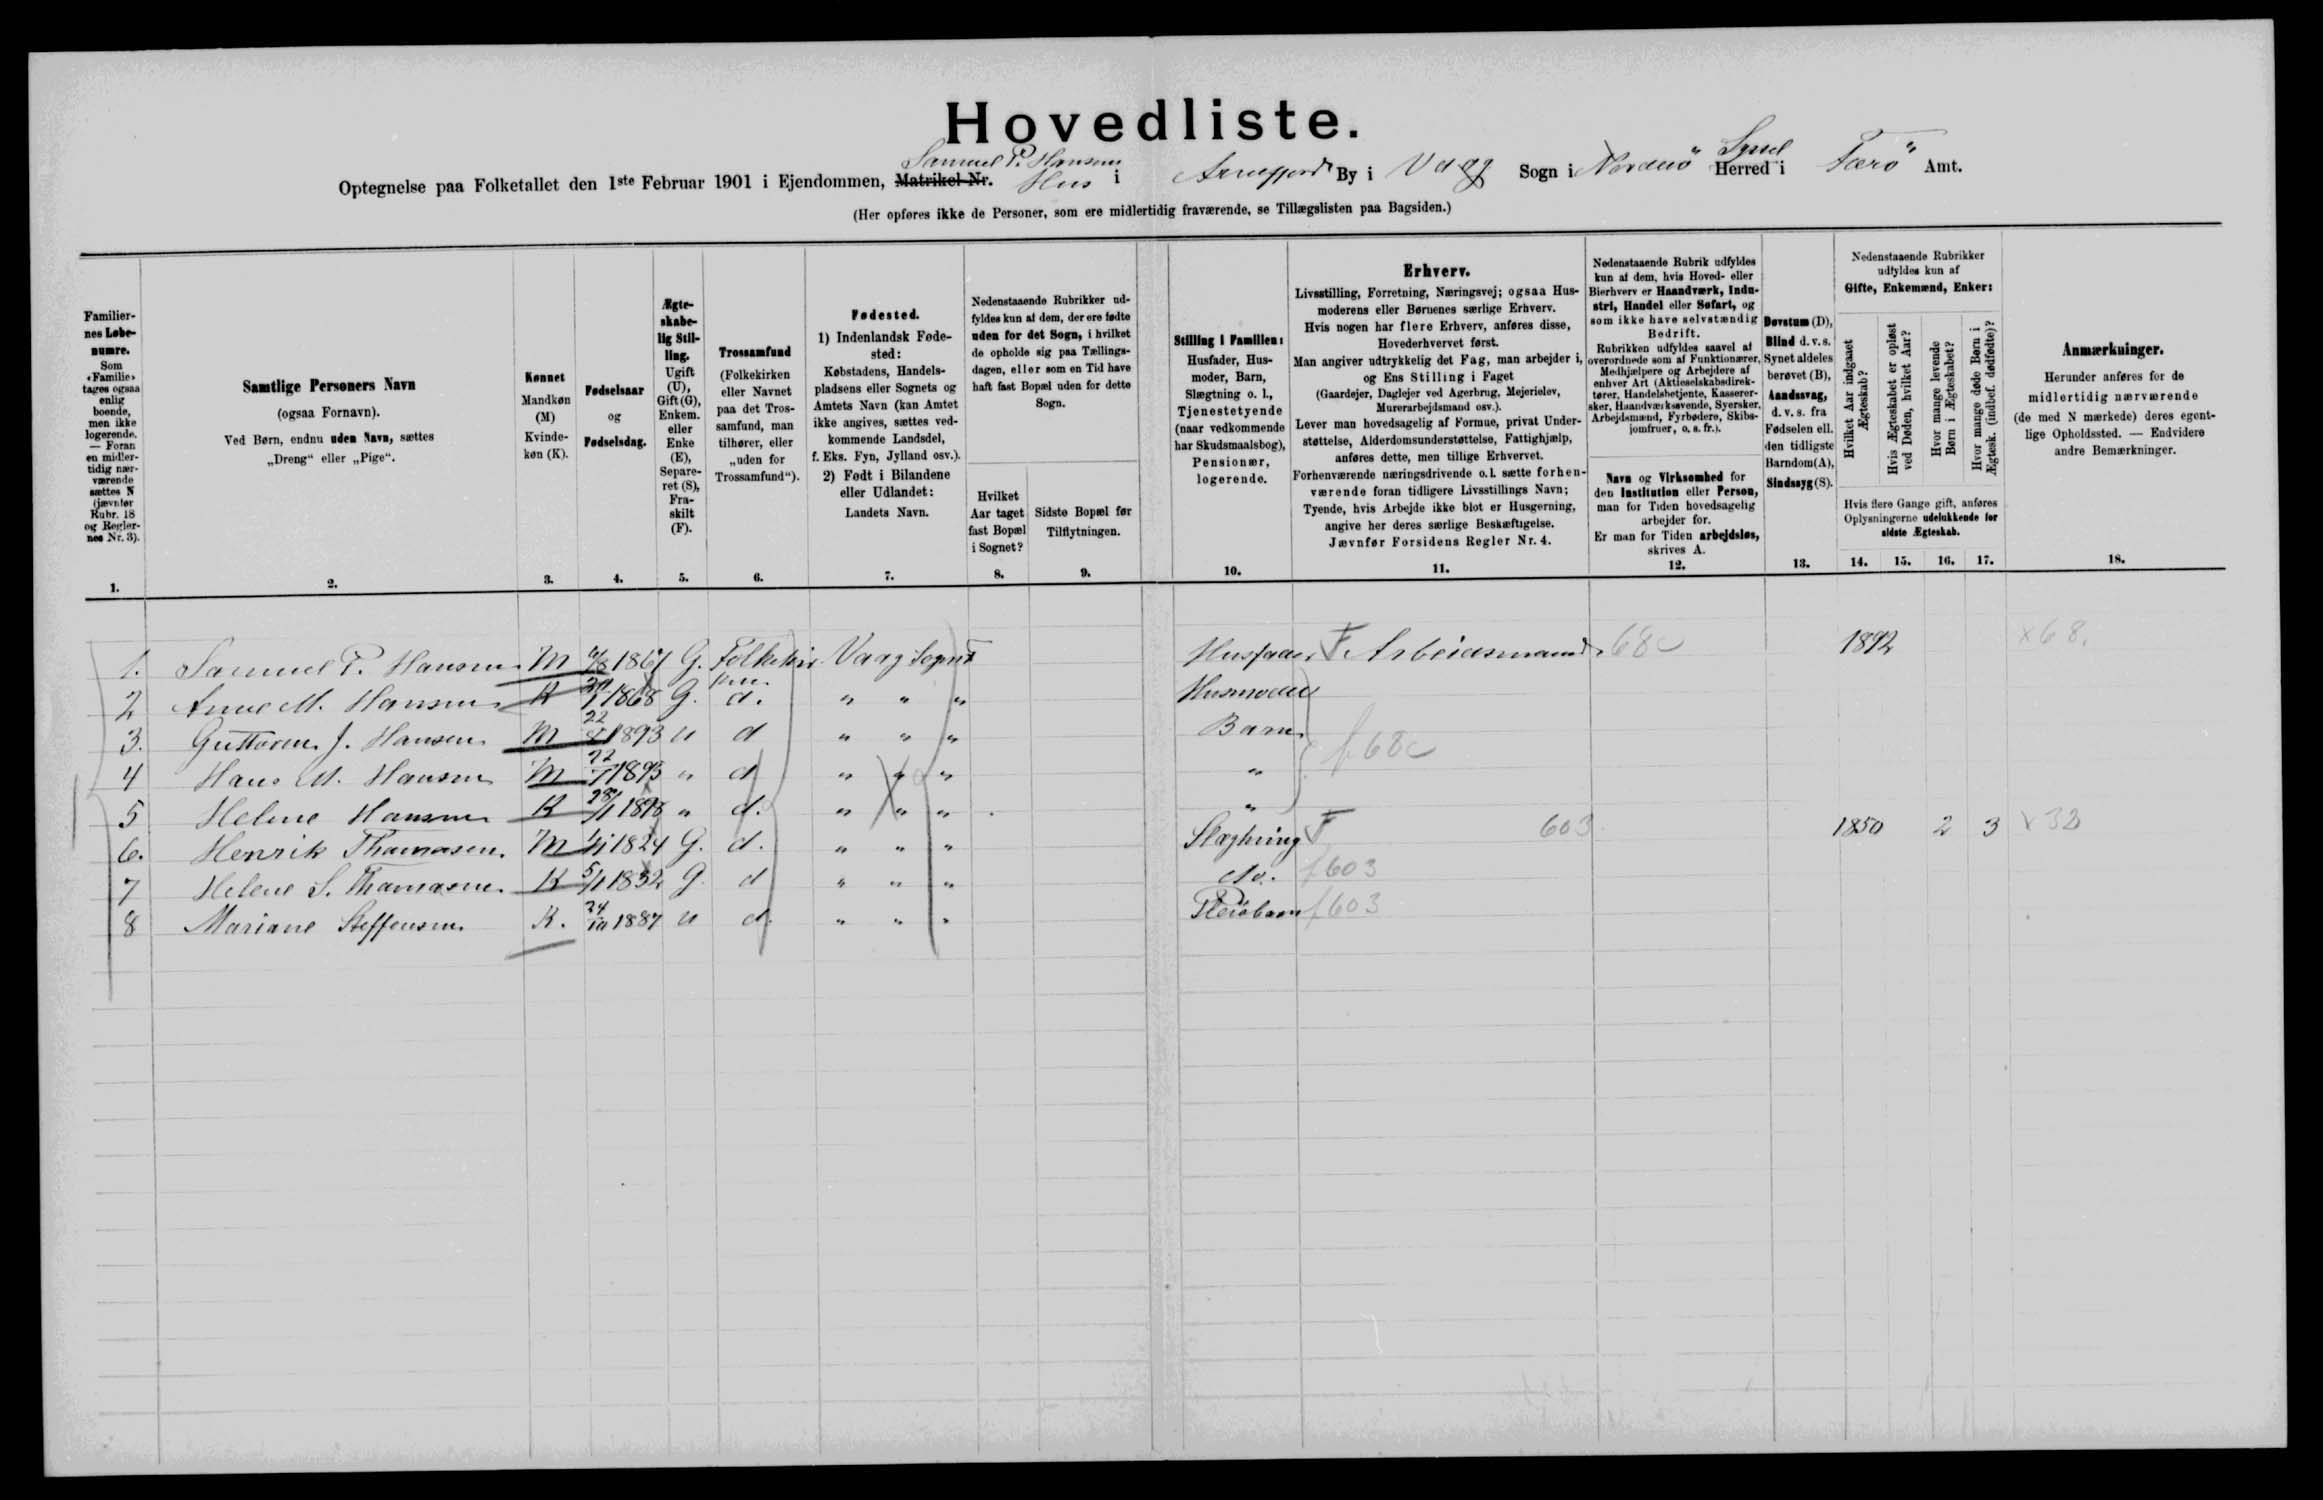 Hovedliste.
Samuel P. Hansens Lyssel
Optegnelse paa Folketallet den 1ste Februar 1901 i Ejendommen, Matrikel-Nr. Hus i Arnefjord By i Vaag Sogn i Norderö Herred i Færö Amt.
(Her opføres ikke de Personer, som ere midlertidig fraværende, se Tillægslisten paa Bagsiden.)
Familier-
nes Løbe-
numre.
Som
«Familie»
tages ogsaa
enlig
boende,
men ikke
logerende.
— Foran
en midler-
tidig nær-
værende
sættes N
(jævnfør
Rubr. 18
og Regler-
nes Nr. 3).
1.
Samtlige Personers Navn
(ogsaa Fornavn).
Ved Børn, endnu uden Navn, sættes
„Dreng“ eller „Pige“.
2.
Kønnet
Mandkøn
(M)
Kvinde-
køn (K).
3.
Fødselsaar
og
Fødselsdag.
4.
Ægte-
skabe-
lig Stil-
ling.
Ugift
(U),
Gift (G),
Enkem.
eller
Enke
(E),
Separe-
ret (S),
Fra-
skilt
(F).
5.
Trossamfund
(Folkekirken
eller Navnet
paa det Tros-
samfund, man
tilhører, eller
„uden for
Trossamfund“).
6.
Fødested.
1) Indenlandsk Føde-
sted:
Købstadens, Handels-
pladsens eller Sognets og
Amtets Navn (kan Amtet
ikke angives, sættes ved-
kommende Landsdel,
f. Eks. Fyn, Jylland osv.).
2) Født i Bilandene
eller Udlandet:
Landets Navn.
7.
Nedenstaaende Rubrikker ud-
fyldes kun af dem, der ere fødte
uden for det Sogn, i hvilket
de opholde sig paa Tællings-
dagen, eller som en Tid have
haft fast Bopæl uden for dette
Sogn.
Hvilket
Aar taget
fast Bopæl
i Sognet?
8.
Sidste Bopæl før
Tilflytningen.
9.
Stilling i Familien:
Husfader, Hus-
moder, Barn,
Slægtning o. l.,
Tjenestetyende
(naar vedkommende
har Skudsmaalsbog),
Pensionær,
logerende.
10.
Erhverv.
Livsstilling, Forretning, Næringsvej; ogsaa Hus-
moderens eller Børnenes særlige Erhverv.
Hvis nogen har flere Erhverv, anføres disse,
Hovederhvervet først.
Man angiver udtrykkelig det Fag, man arbejder i,
og Ens Stilling i Faget
(Gaardejer, Daglejer ved Agerbrug, Mejerielev,
Murerarbejdsmand osv.).
Lever man hovedsagelig af Formue, privat Under-
støttelse, Alderdomsunderstøttelse, Fattighjælp,
anføres dette, men tillige Erhvervet.
Forhenværende næringsdrivende o. l. sætte forhen-
værende foran tidligere Livsstillings Navn;
Tyende, hvis Arbejde ikke blot er Husgerning,
angive her deres særlige Beskæftigelse.
Jævnfør Forsidens Regler Nr. 4.
11.
Nedenstaaende Rubrik udfyldes
kun af dem, hvis Hoved- eller
Bierhverv er Haandværk, Indu-
stri, Handel eller Søfart, og
som ikke have selvstændig
Bedrift.
Rubrikken udfyldes saavel af
overordnede som af Funktionærer,
Medhjælpere og Arbejdere af
enhver Art (Aktieselskabsdirek-
tører, Handelsbetjente, Kasserer-
sker, Haandværkssvende, Syersker,
Arbejdsmænd, Fyrbødere, Skibs-
jomfruer, o. s. fr.).
Navn og Virksomhed for
den Institution eller Person,
man for Tiden hovedsagelig
arbejder for.
Er man for Tiden arbejdsløs,
skrives A.
12.
Døvstum (D),
Blind d. v. s.
Synet aldeles
berøvet (B),
Aandssvag,
d. v. s. fra
Fødselen ell.
den tidligste
Barndom (A),
Sindssyg (S).
13.
Nedenstaaende Rubrikker
udfyldes kun af
Gifte, Enkemænd, Enker:
Hvilket Aar indgaaet
Ægteskab?
Hvis Ægteskabet er opløst
ved Døden, hvilket Aar?
Hvor mange levende
Børn i Ægteskabet?
Hvor mange døde Børn i
Ægtesk. (indbef. dødfødte)?
Hvis flere Gange gift, anføres
Oplysningerne udelukkende for
sidste Ægteskab.
14. 15. 16. 17.
Anmærkninger.
Herunder anføres for de
midlertidig nærværende
(de med N mærkede) deres egent-
lige Opholdssted. — Endvidere
andre Bemærkninger.
18.
1. Samuel P. Hansen M 1867 G. Folkekir Vaag Sogn Husfader F. Arbeidsmand 68c 1892 x68.
ken
2 Anne M. Hansen K 1868 G. d. " " " Husmoder
3. Guttorm J. Hansen M 22 1893 u d " " " Barn f68c
4 Hans M. Hansen M 22/1 1895 " d " " " "
5 Helene Hansen K 28/1 1898 " d. " " " "
6. Henrik Thomasen. M 1824 G. d. " " " Slægtning F 603 1850 2 3 x32
7 Helene S. Thomasen K 5/1 1832 G. d " " " do. f603
8 Mariane Steffensen K. 24/10 1887 u d. " " " Pleiebarn f603